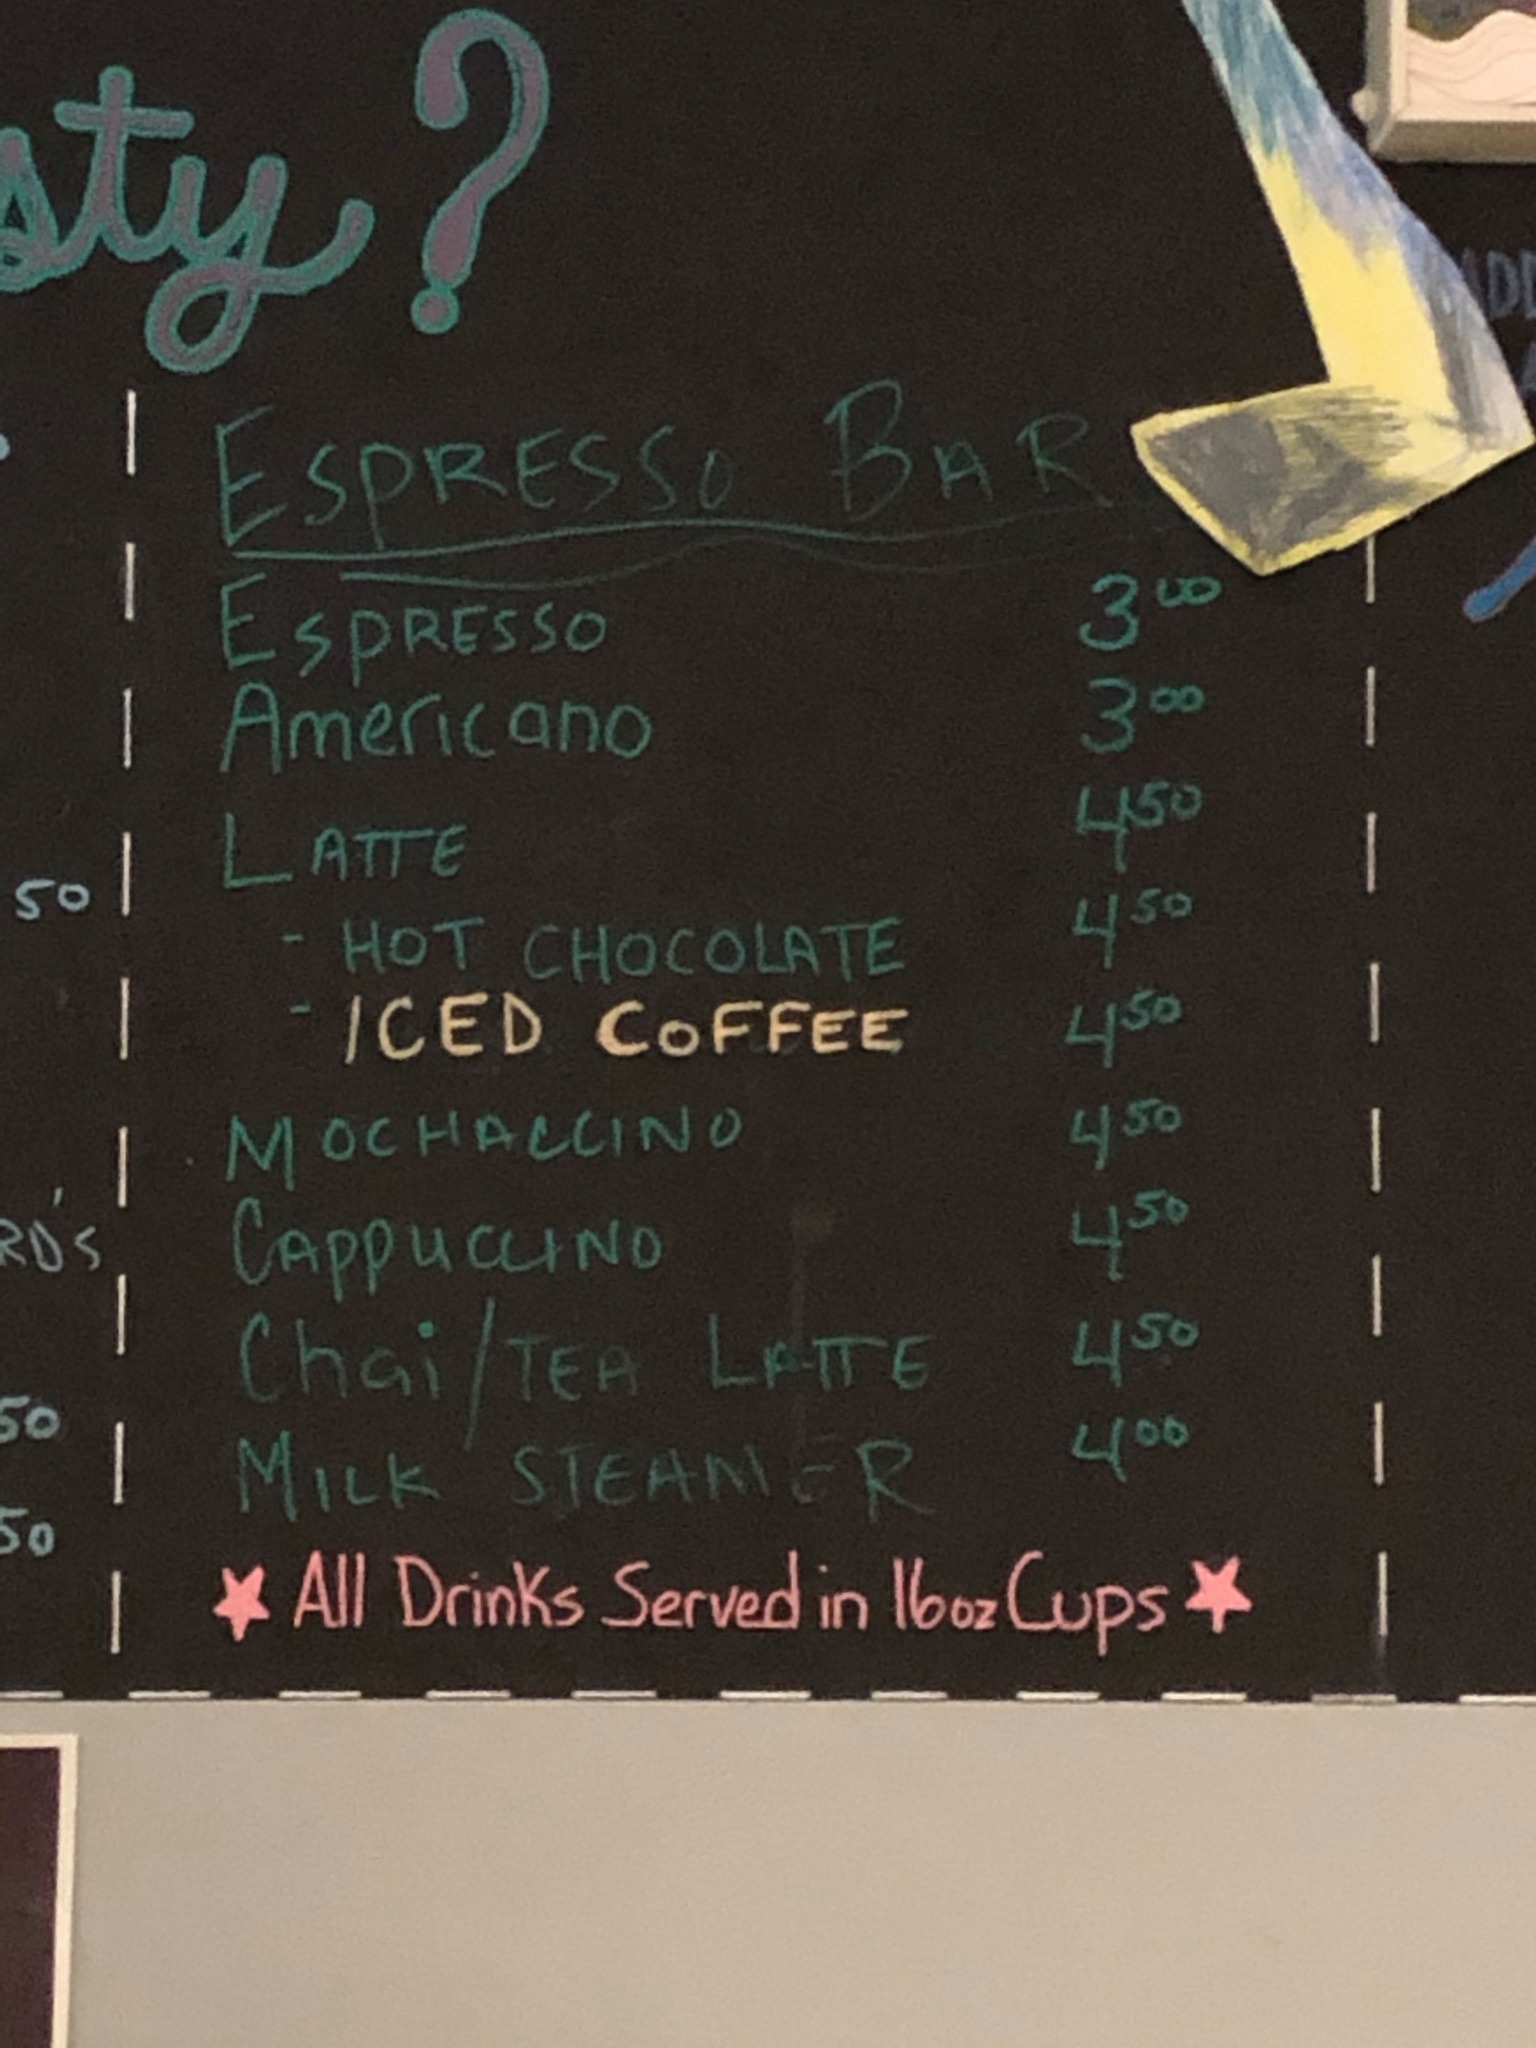 sty?
ESPRESSO BAR
ESPRESSO 3⁰⁰
Americano 3⁰⁰
LATTE 4⁵⁰
- HOT CHOCOLATE 4⁵⁰
- ICED COFFEE 4⁵⁰
MOCHACCINO 4⁵⁰
CAPPUCCINO 4⁵⁰
Chai/TEA LATTE 4⁵⁰
MILK STEAMER 4⁰⁰
★ All Drinks Served in 16oz Cups ★
50
RD's
50
50
ADD